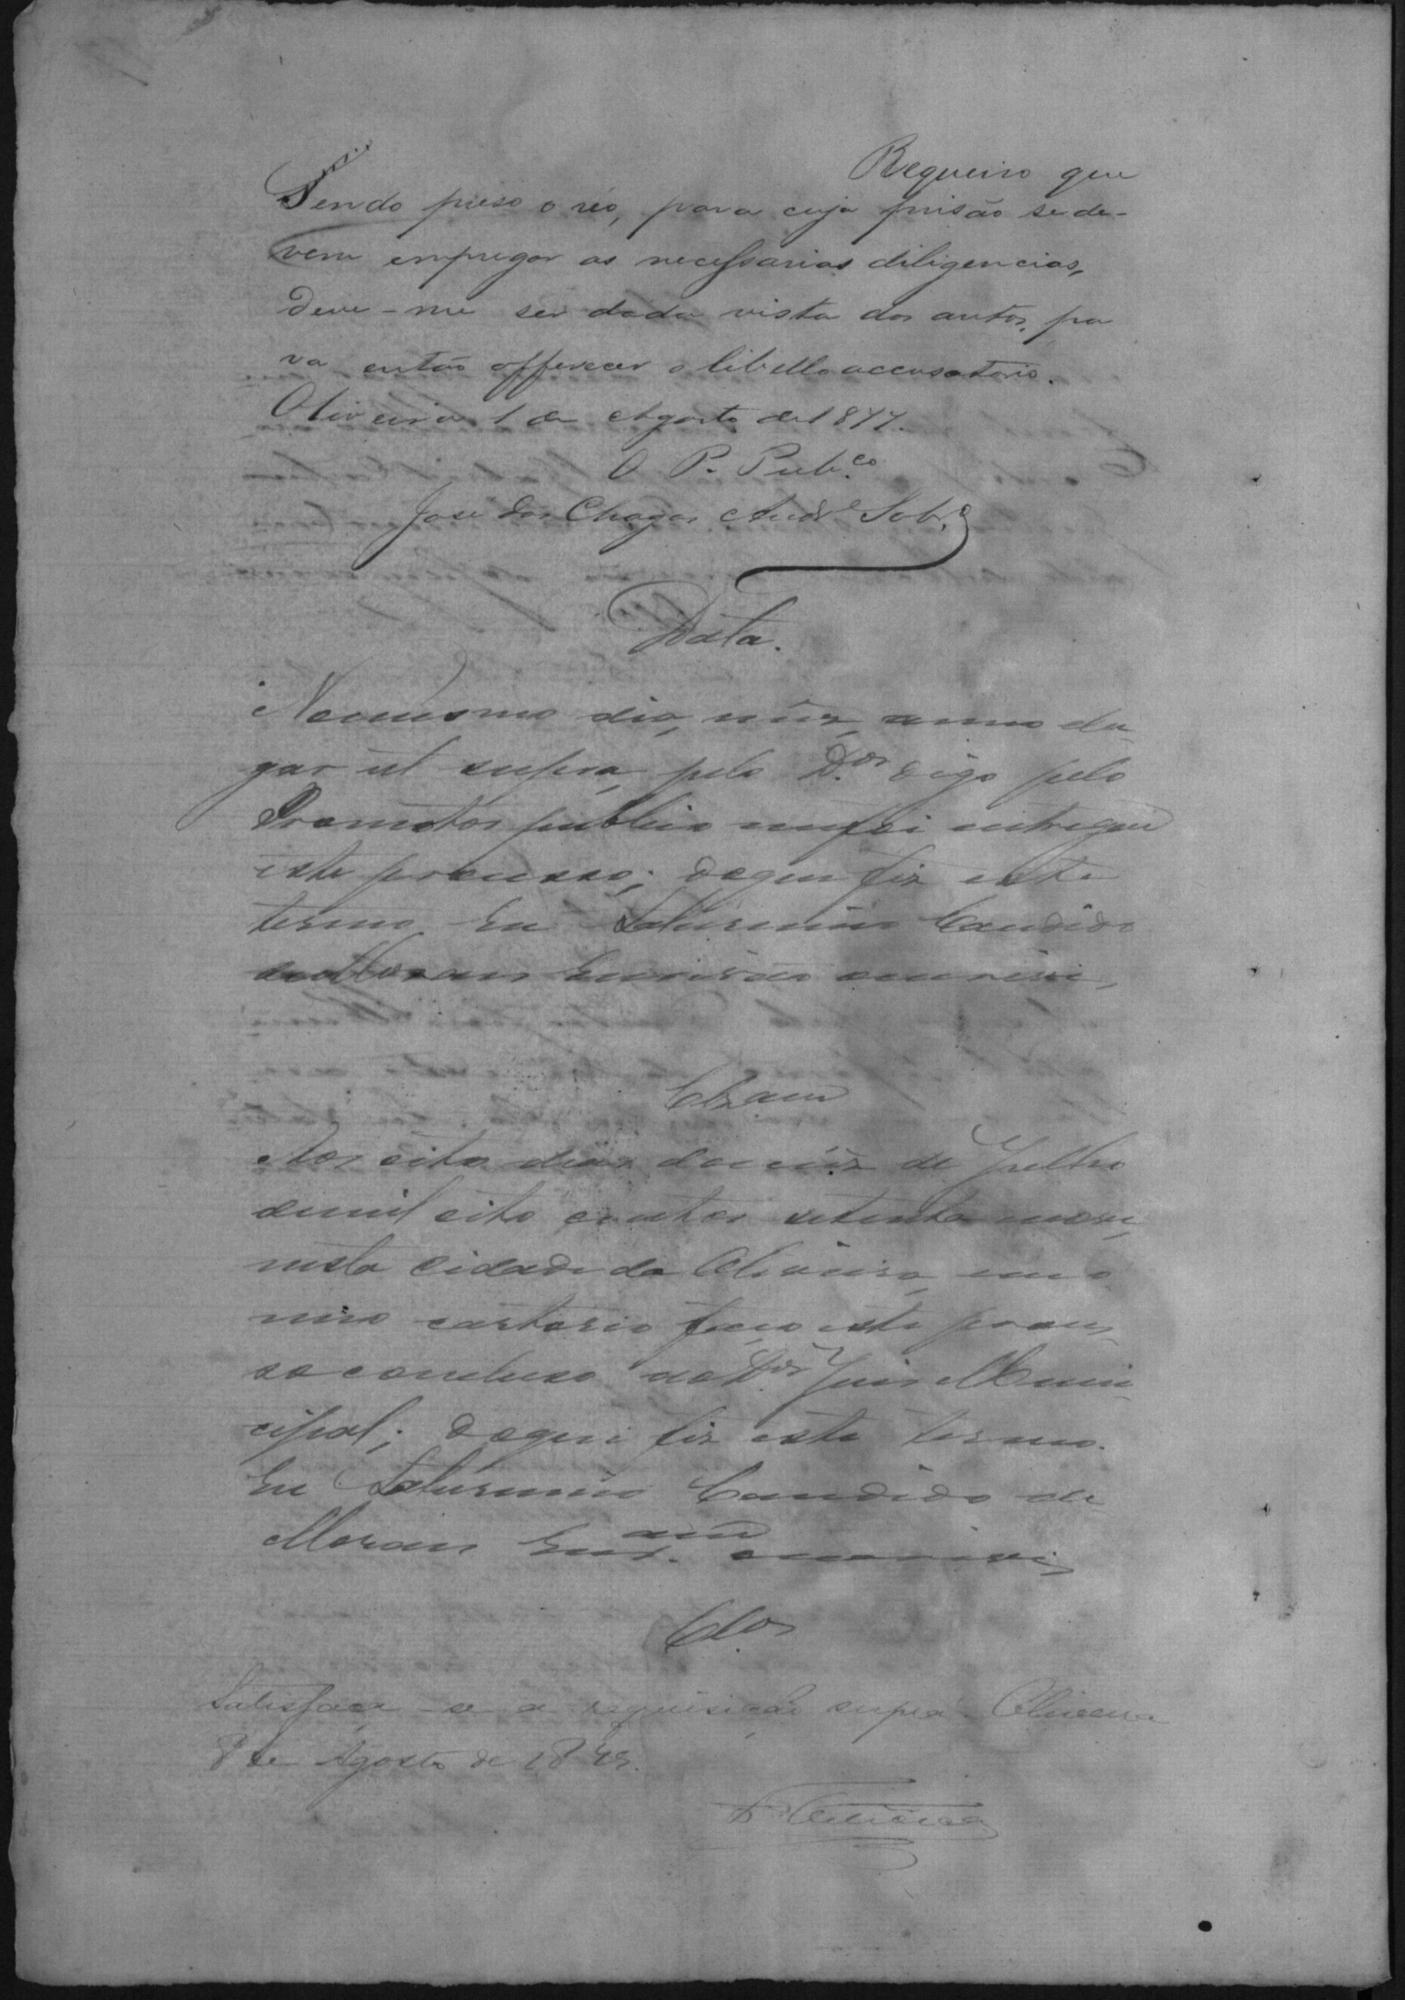 Requeiro que
Sendo preso o reo, para cuja prisão se de-
vem empregar as necessarias diligencias,
deve-me ser dada vista dos autos, pa
ra então offerecer o libello accusatorio.
Oliveira 1 de Agosto de 1877.
O P. Pub.co
José das Chagas Andr.e Sob.o
Data.
No mesmo dia, mez, anno lu
gar ut supra, pelo D.or digo pelo
Promotor publico me foi entregue
este processo; do que fiz este
termo. Eu Saturnino Candido
de Moraes Escrivão o escrevi,
Clzam
Aos oito dias do mez de Julho
de mil oito centos setenta
nesta Cidade da Oliveira, em
meo cartorio faço este proces
so concluso ao D.or Juis Muni
cipal; do que fiz este termo.
Eu Saturnino Candido de
Moraes Escr.am o escrevi,
Cl.os
Satisfaça-se a requisição supra. Oliveira
8 de Agosto de